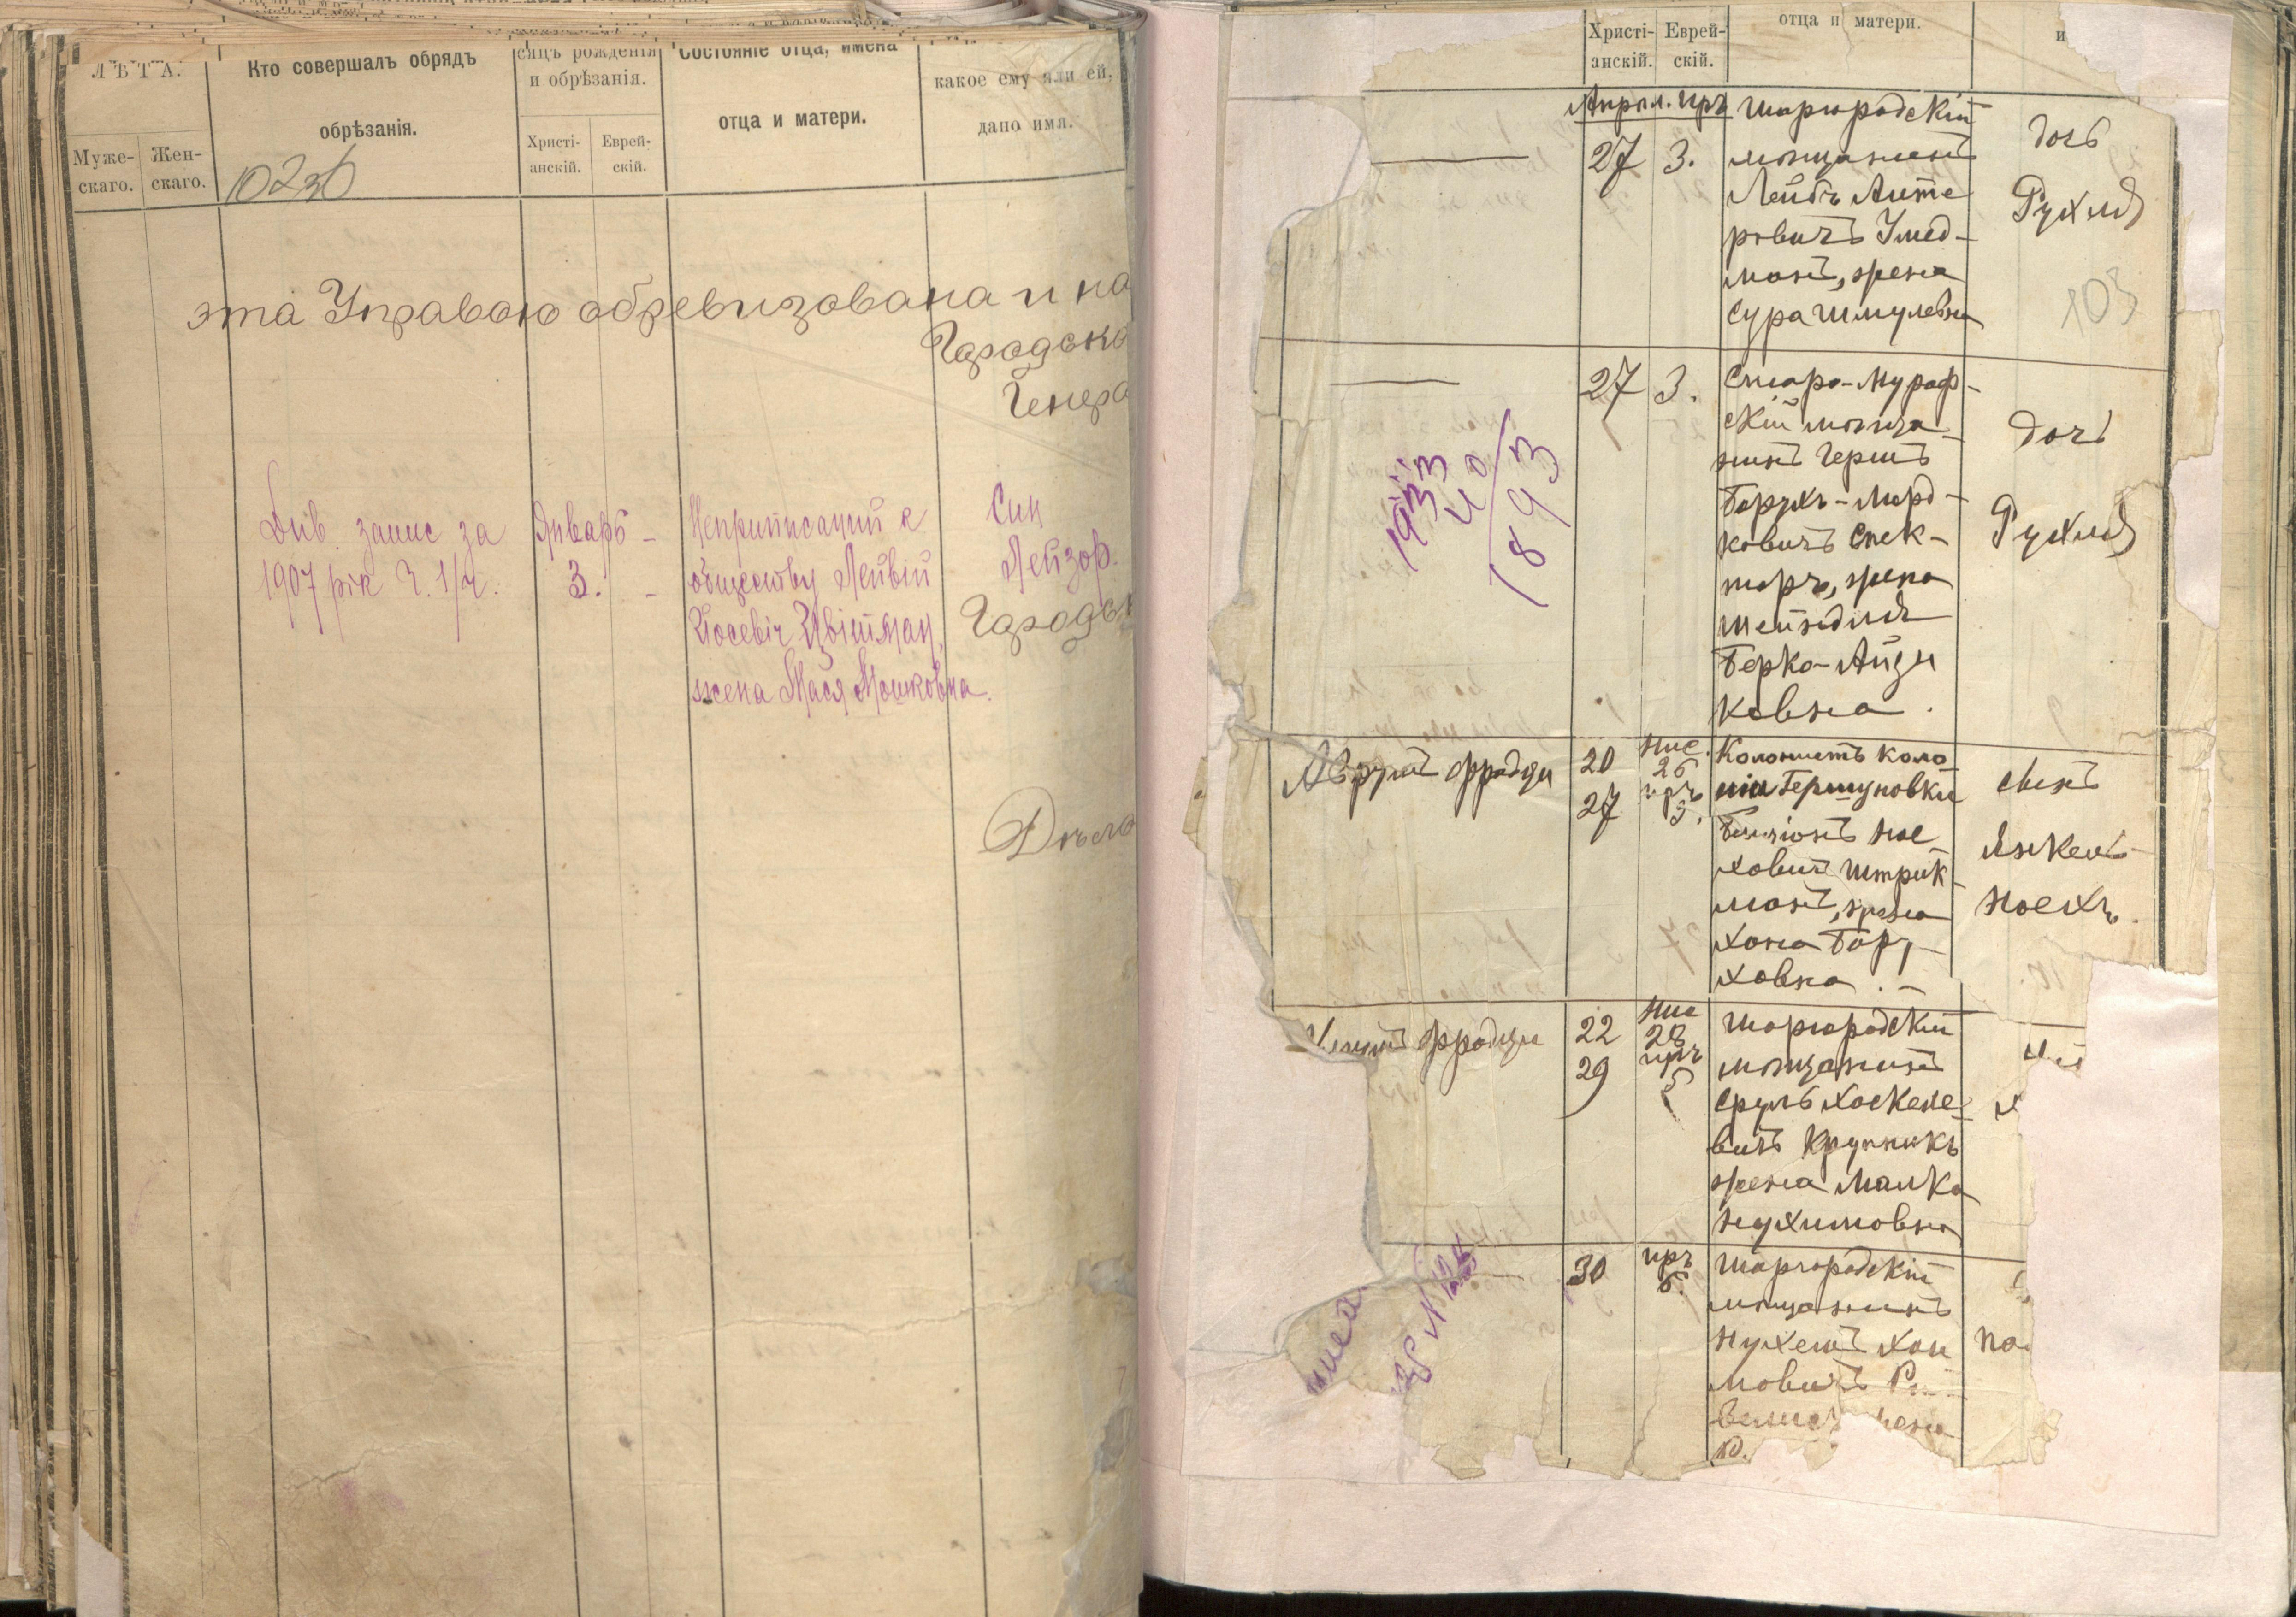 ЛѢТА.
Муже-
скаго.
Жен-
скаго.
Кто совершалъ обрядъ
обрѣзанія.
сяцъ рожденія
и обрѣзанія.
Христі-
анскій.
Еврей-
скій.
Состояніе отца, имена
отца и матери.
какое ему или ей,
дано имя.
эта Управою обревизована и на
Городско
Генера
Див. запис за
1907 рік Ч. 1/ч.
Январь -
3. -
Неприписаний к
обществу Лейвій
Йосевіч Цвітман,
жена Мася Мошковна.
Син
Лейзор.
Городск
Христі-
анскій.
Еврей-
скій.
отца и матери.
и
Апрѣл. Иръ
27 3.
Шаргородскій
мѣщанинъ
Лейбъ Анте
ровичъ Умед-
манъ, жена
Сура Шмулевна
дочь
Рухля
103
27 3.
Старо-Мураф-
скій мѣща-
нинъ Гершъ
Борухъ-Морд-
ковичъ Спек-
торъ, жена
Шейндля
Берко-Айзи
ковна.
дочь
Рухля
1933
40
1893
20
27
Нис.
26
иръ
3.
Колонистъ коло
ніи Гершуновки
Бенціонъ Нае
ховичъ Штрик-
манъ, жена
Хона Бору-
ховна.-
сынъ
Янкель-
Ноехъ.
22
29
Нис
28
иръ
5
Шаргородскій
мѣщанинъ
Сруль Хаскеле-
вичъ Крупникъ
жена Малка
Нухимовна
30
иръ
6.
Шаргородскій
мѣщанинъ
Нухемъ Хаи
мовичъ
жена